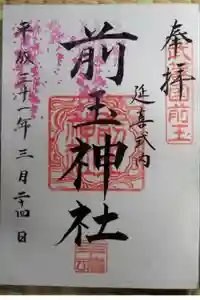 奉拝
延喜式内
前玉神社
平成三十一年三月二十四日